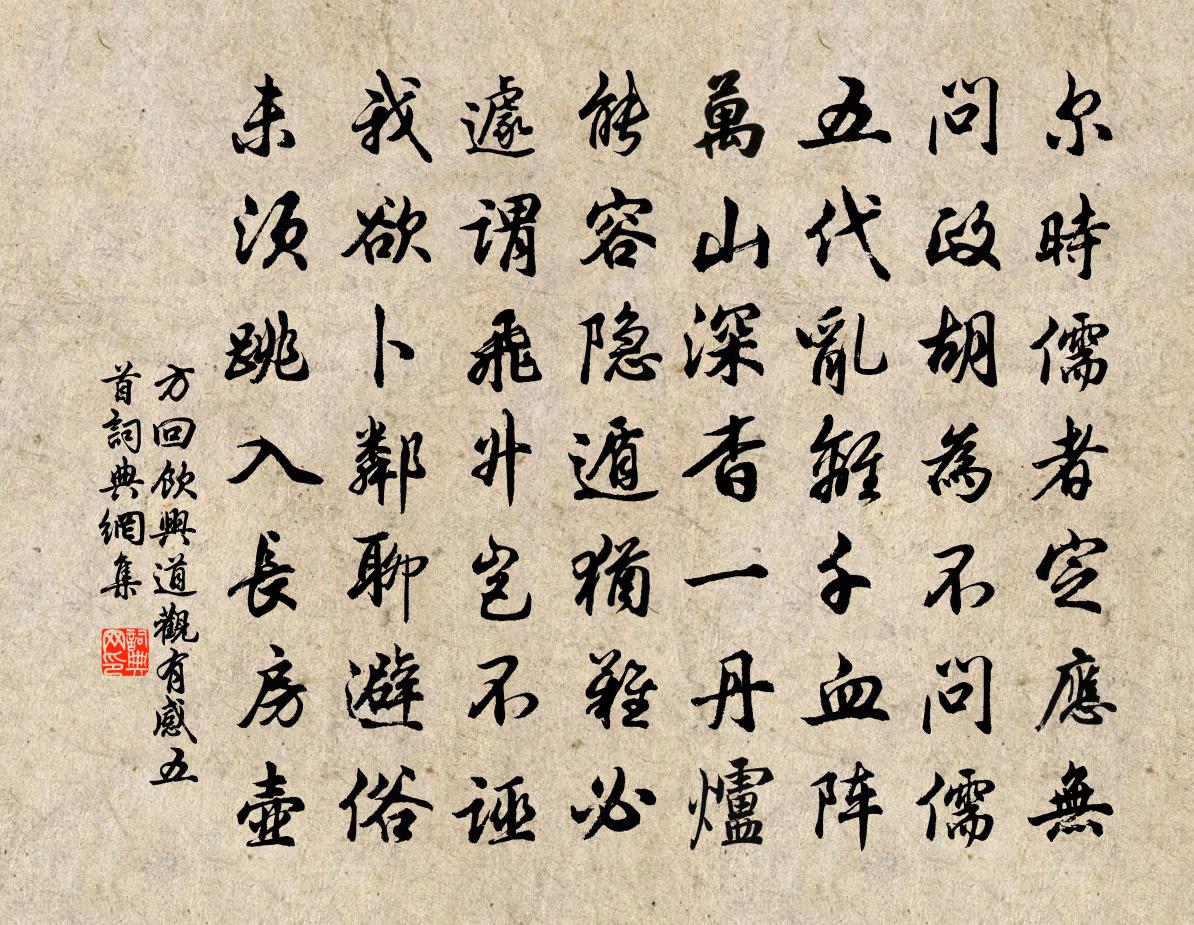 尔時儒者定應無
問政胡為不問儒
五代亂離千血阵
萬山深杳一丹爐
能容隐遁猶難必
遽謂飛升岂不誣
我欲卜鄰聊避俗
未須跳入長房壺
方回飲興道觀有感五
首詞典網集
詞典
网印